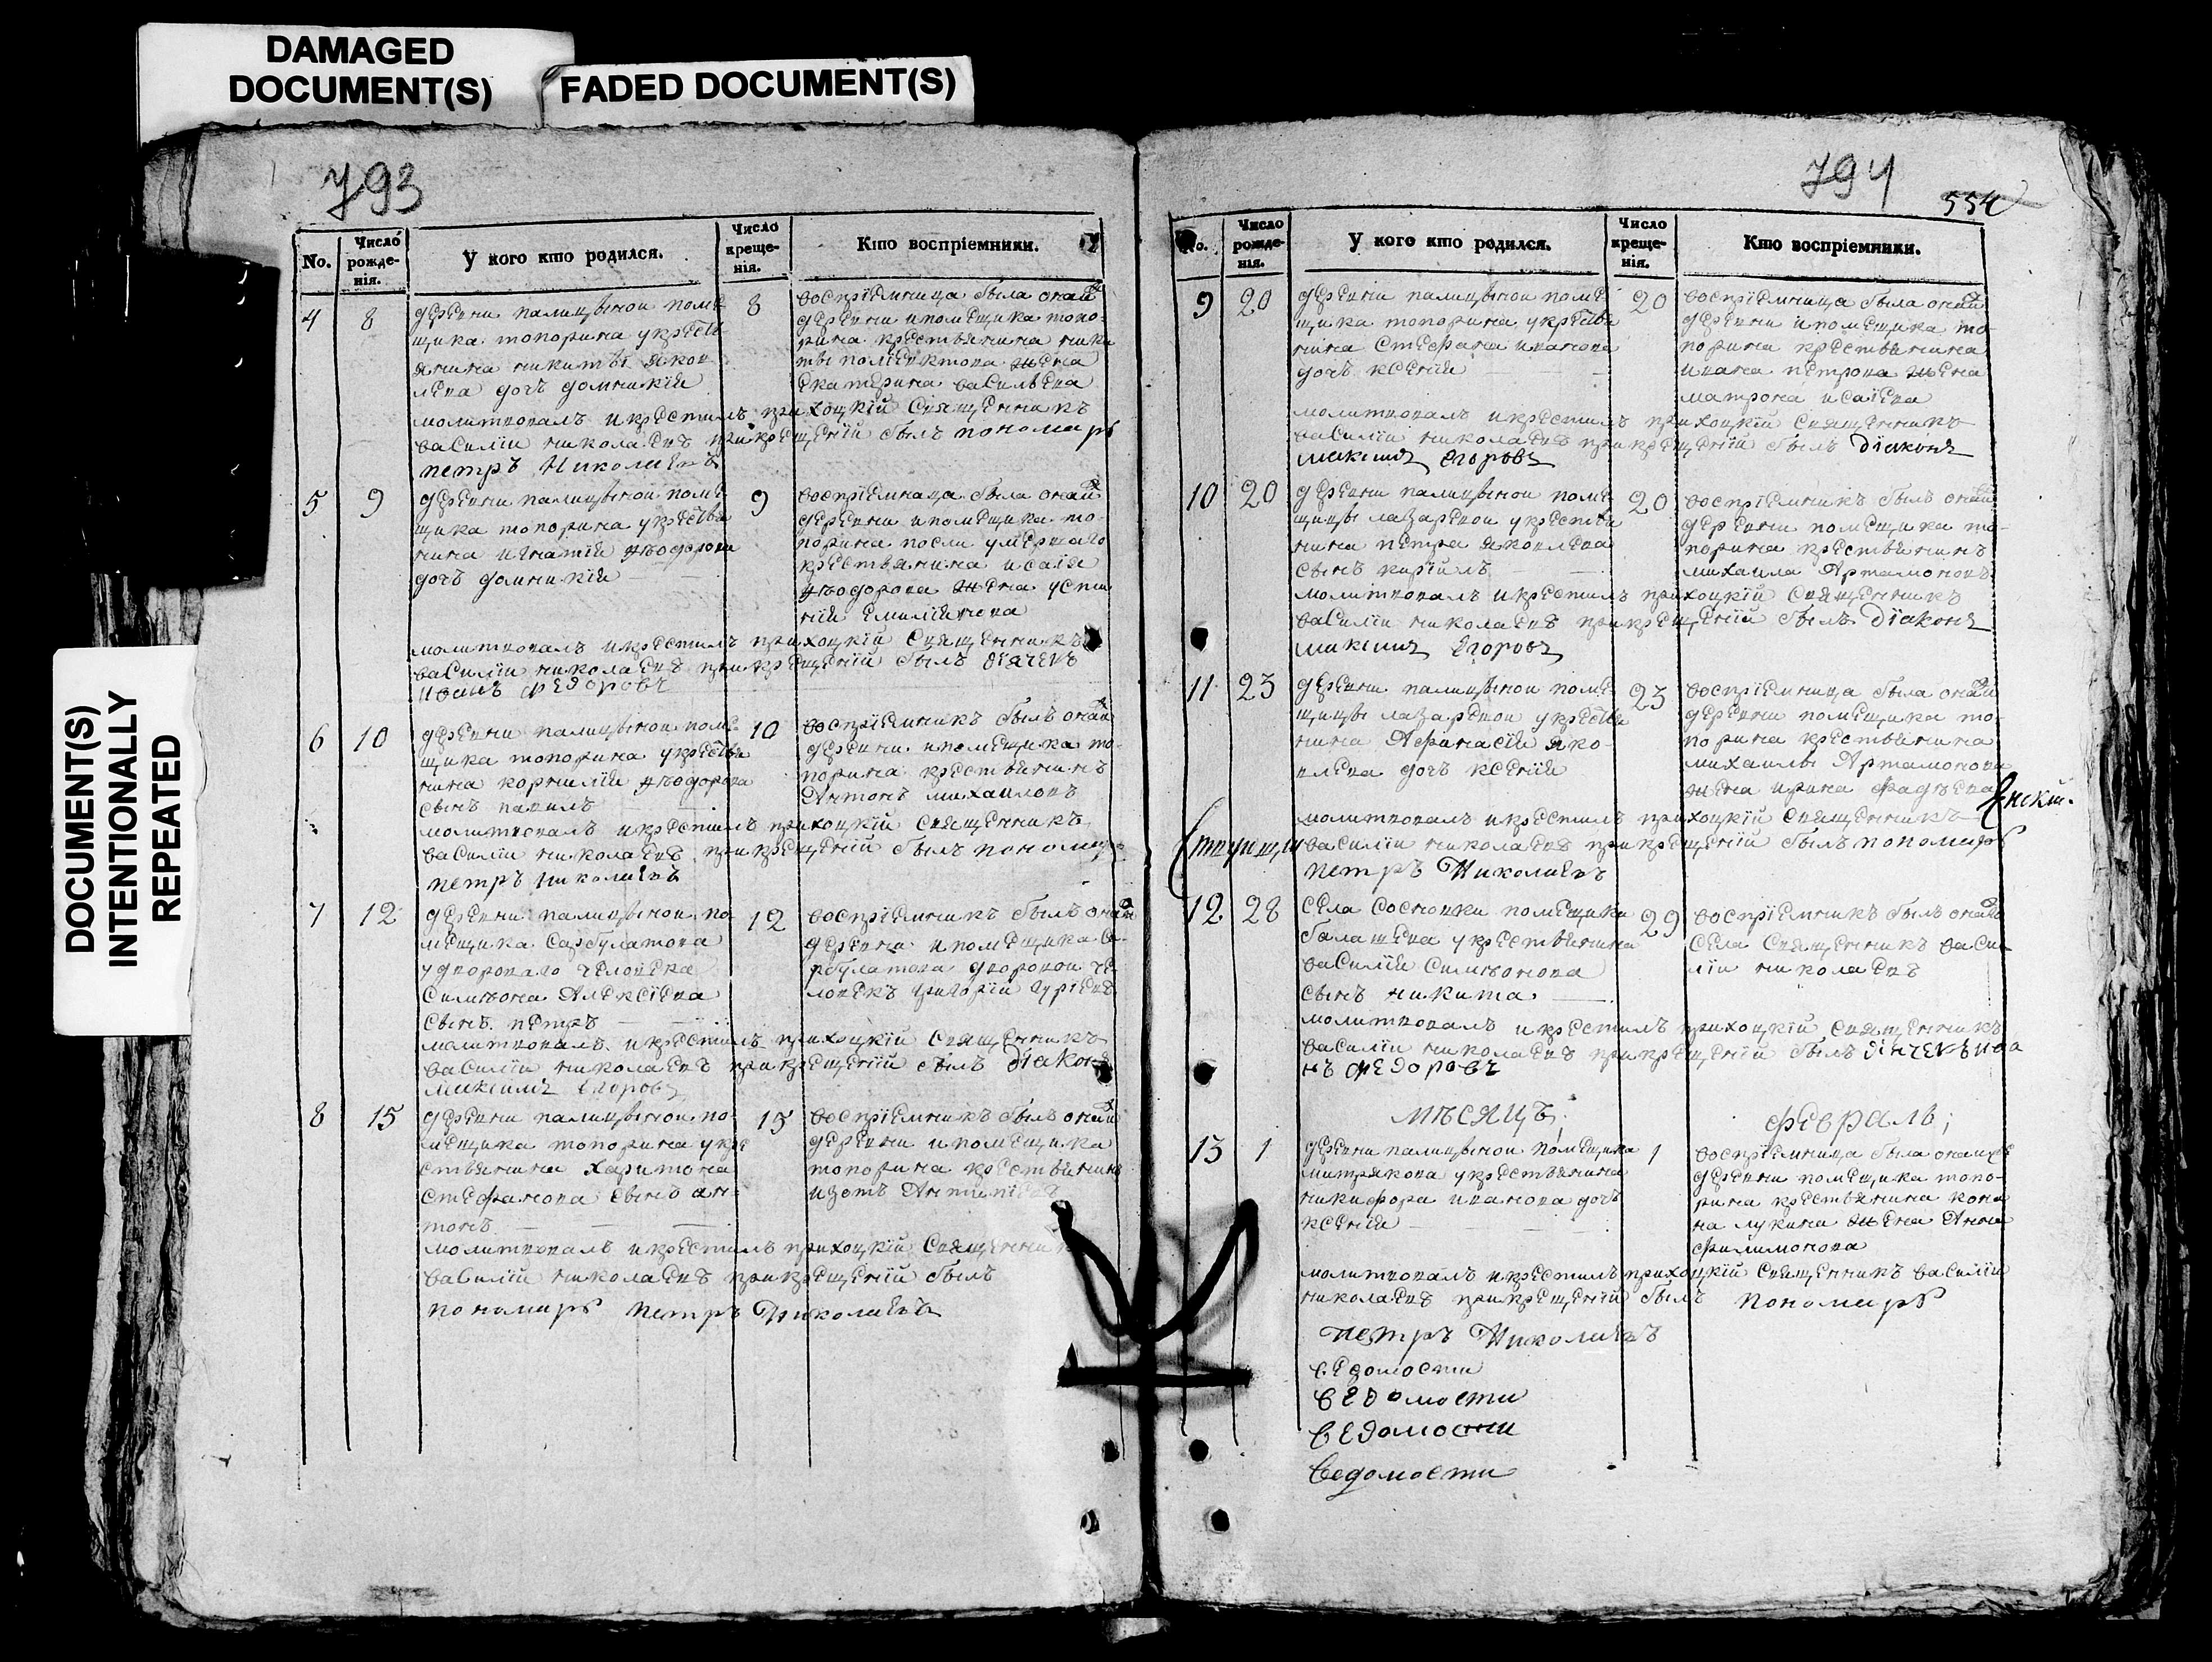 DAMAGED
DOCUMENT(S)
FADED DOCUMENT(S)
DOCUMENT(S)
INTENTIONALLY
REPEATED
793
No.
Число
рожде-
нія.
У кого кто родился.
Число
креще-
нія.
Кто воспріемники.
4 8
деревни палицыной поме
щика топорина укрестья
янина никиты яков
лева дочъ домникия
8
воспріемница была оной
деревни ипомещика топо-
рина крестьянина ники
ты полиевктова жена
екатерина васильева
молитвовалъ икрестилъ приходкій священникъ
василіи николаевъ прикрещеніи былъ пономарь
петръ Николаевъ
5 9
деревни палицыной поме
щика топорина укрестья
нина игнатия ѳьодорова
дочъ домникия
9
воспріемница была оной
деревни ипомещика то-
порина посли умершаго
крестьянина исаія
ѳьодорова жена усти
нія емиліянова
молитвовалъ икрестилъ приходкій священникъ
василіи николаевъ прикрещеніи былъ дїячекъ
иванъ федоровъ
6 10
деревни палицыной поме
щика топорина укрестья
нина корнилия ѳьодорова
сынъ павилъ
10
воспріемникъ былъ оной
деревни ипомещика то-
порина крестьянинъ
Антонъ михаиловъ
молитвовалъ икрестилъ приходкій священникъ
василіи николаевъ прикрещеніи былъ пономарь
петръ николаевъ
7 12
деревни палицыной по-
мещика Сарбулатова
удворового человека
симиѡна Алексіева
сынъ петръ
12
воспріемникъ былъ оной
деревни ипомещика са-
рбулатова дворовои че
ловекъ григорій гуріевъ
молитвовалъ икрестилъ приходкій священникъ
василіи николаевъ прикрещеніи былъ діаконъ
максимъ егоровъ
8 15
деревни палицыной по-
мещика топорина укре
стьянина харитона
стефанова сынъ ан-
тонъ
15
воспріемникъ былъ оной
деревни ипомещика
топорина крестьянинъ
изотъ
молитвовалъ икрестилъ приходкій священникъ
василіи николаевъ прикрещеніи былъ
пономарь петръ Николаевъ
794
554
No.
Число
рожде-
нія.
У кого кто родился.
Число
креще-
нія.
Кто воспріемники.
9 20
деревни палицыной поме
щика топорина укрестья
нина стефана иванова
дочъ ксения
20
воспріемница была оной
деревни ипомещика то-
порина крестьянина
ивана петрова жена
матрона исаіева
молитвовалъ икрестилъ приходкій священникъ
василіи николаевъ прикрещеніи былъ діаконъ
максимъ егоровъ
10 20
деревни палицыной поме
щицы лазаревой укрестья
нина петра яковлева
сынъ кирійлъ
20
воспріемникъ былъ оной
деревни помещика то-
порина крестьянинъ
михаила Артамоновъ
молитвовалъ икрестилъ приходкій священникъ
василіи николаевъ прикрещеніи былъ діаконъ
максимъ егоровъ
11 23
деревни палицыной поме
щицы лазаревой укрестья
нина Афанасия яко-
влева дочъ ксения
23
воспріемница была оной
деревни помещика то-
порина крестьянина
михаилы Артамонова
жена ирина фадѣева
молитвовалъ икрестилъ приходкій священникъ
василіи николаевъ прикрещеніи былъ пономарь
петръ Николаевъ
12 28
села сосновки помещика
балашева укрестьянина
василия симиѡнова
сынъ никита
29
воспріемникъ былъ онаго
села священникъ васи
ліи николаевъ
молитвовалъ икрестилъ приходкій священникъ
василіи николаевъ прикрещеніи былъ дїячекъ ива
нъ федоровъ
мѣсяцъ; февраль;
13 1
деревни палицыной помещика
митрякова укрестьянина
никифора иванова дочъ
ксения
1
воспріемница была онаиже
деревни помещика топо-
рина крестьянина коно
на лукина жена Анна
филимонова
молитвовалъ икрестилъ приходкій священникъ василіи
николаевъ прикрещеніи былъ пономарь
петръ Николаевъ
ведомости
ведомости
ведомости
ведомости